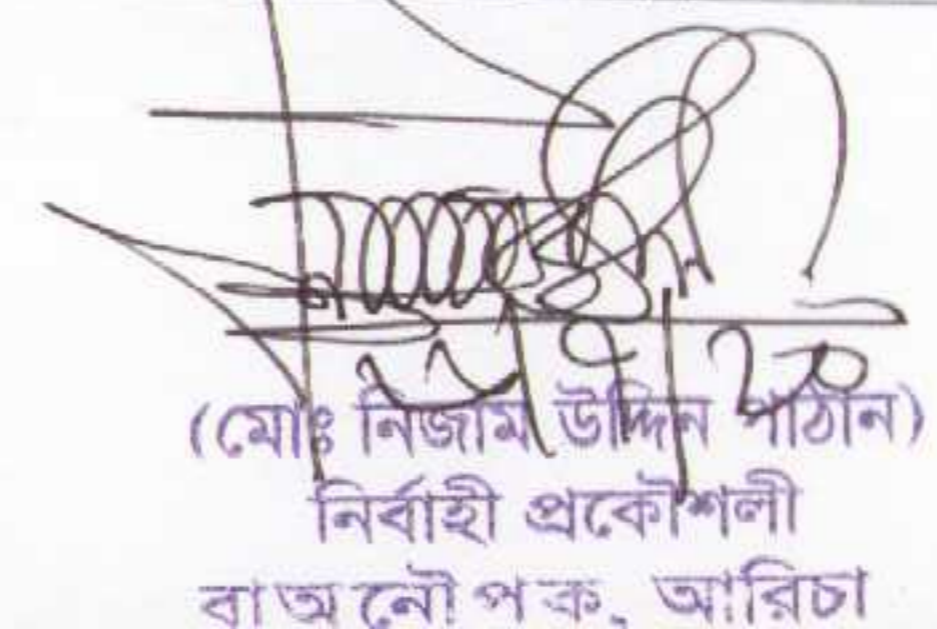 (মোঃ নিজাম উদ্দিন পাঠান)
নির্বাহী প্রকৌশলী
বাঅনৌপক, আরিচা